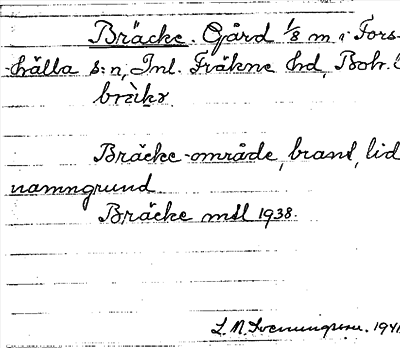 Bräcke. Gård 1/8 m i Fors-
hälla s:n, Inl. Fräkne hd, Boh. l
brὲkɤ
Bräcke-område, brant, lid
namngrund
Bräcke mtl 1938.
L. N. Svenungsson. 1941